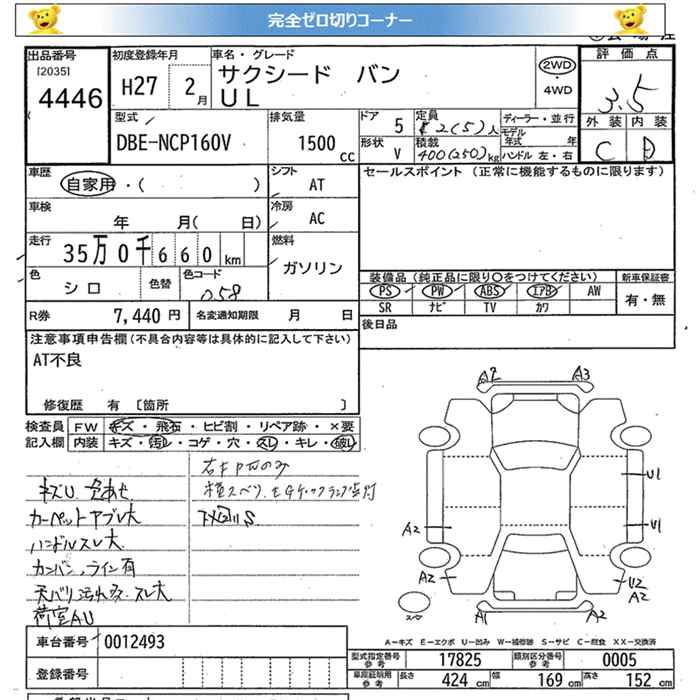 完全ゼロ切りコーナー
出品番号
[2035]
4446
初度登録年月
H27 2月
車名・グレード
サクシード バン
UL
2WD
・
4WD
評価点
3.5
外装 内装
C D
型式
DBE-NCP160V
排気量
1500 cc
ドア
5
形状
V
定員
2(5)人
積載
400(250)kg
ディーラー・並行
モデル年式 年
ハンドル 左・右
車歴
自家用・( )
シフト
AT
セールスポイント (正常に機能するものに限ります)
車検
年 月( 日)
冷房
AC
走行
35万0千660km
燃料
ガソリン
色
シロ
色替
色コード
058
装備品 (純正品に限り○をつけてください)
新車保証書
PS PW ABS エアB AW
SR ナビ TV カワ
有・無
R券 7,440円
名変通知期限 月 日
後日品
注意事項申告欄(不具合内容等は具体的に記入して下さい)
AT不良
修復歴 有 〔箇所 〕
検査員記入欄
FW キズ・飛石・ヒビ割・リペア跡・×要
内装 キズ・汚レ・コゲ・穴・スレ・キレ・破レ
キズU 色あせ
カーペットヤブレ大
ハンドルスレ大
カンバン、ライン有
天バリ汚れ多、スレ大
荷室AU
下回りS
A2 A3
U1
U1
A2
A2
U2
A2
A1 A2
スペア
A-キズ E-エクボ U-凹み W-補修跡 S-サビ C-腐食 XX-交換済
車台番号 0012493
登録番号
型式指定番号 参考 17825
類別区分番号 参考 0005
車庫証明用 参考 長さ 424 cm 幅 169 cm 高さ 152 cm